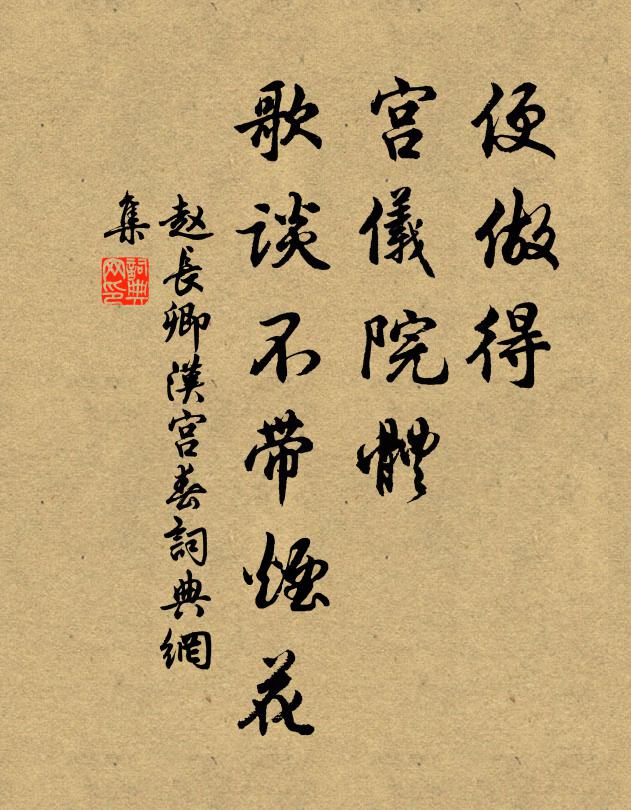 便做得
宫儀院體
歌谈不带煙花
赵長卿漢宫春詞典網
集
詞典
网印